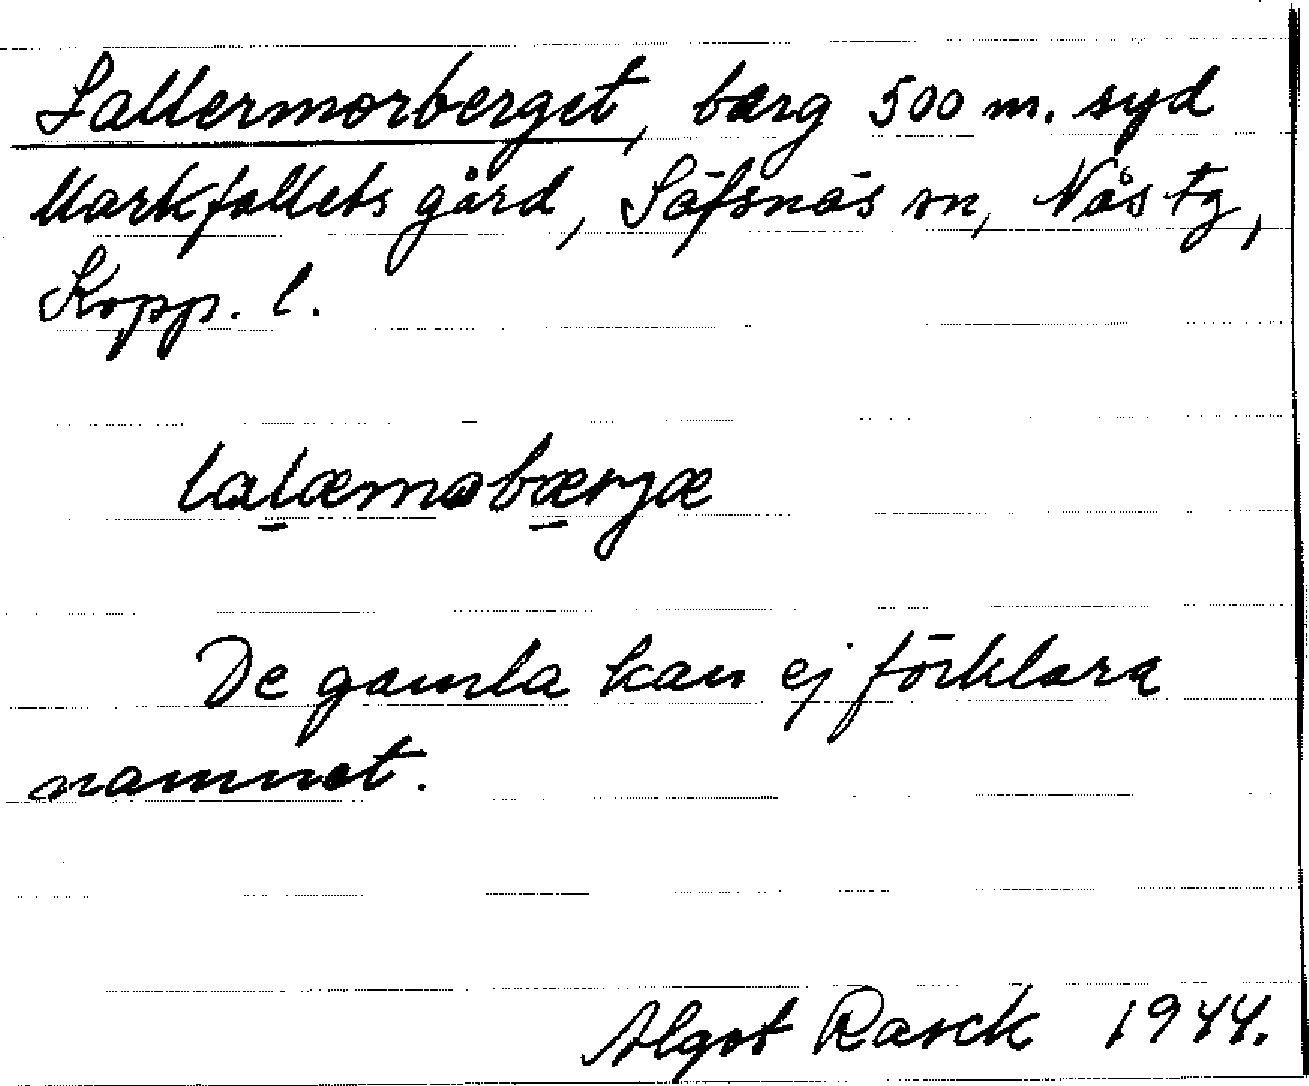 Lallermorberget, berg 500 m. syd
Markfallets gård, Säfsnäs sn, Nås tg,
Kopp. l.
lalæmabærjæ
De gamla kan ej förklara
namnet.
Algot Rasck 1944.